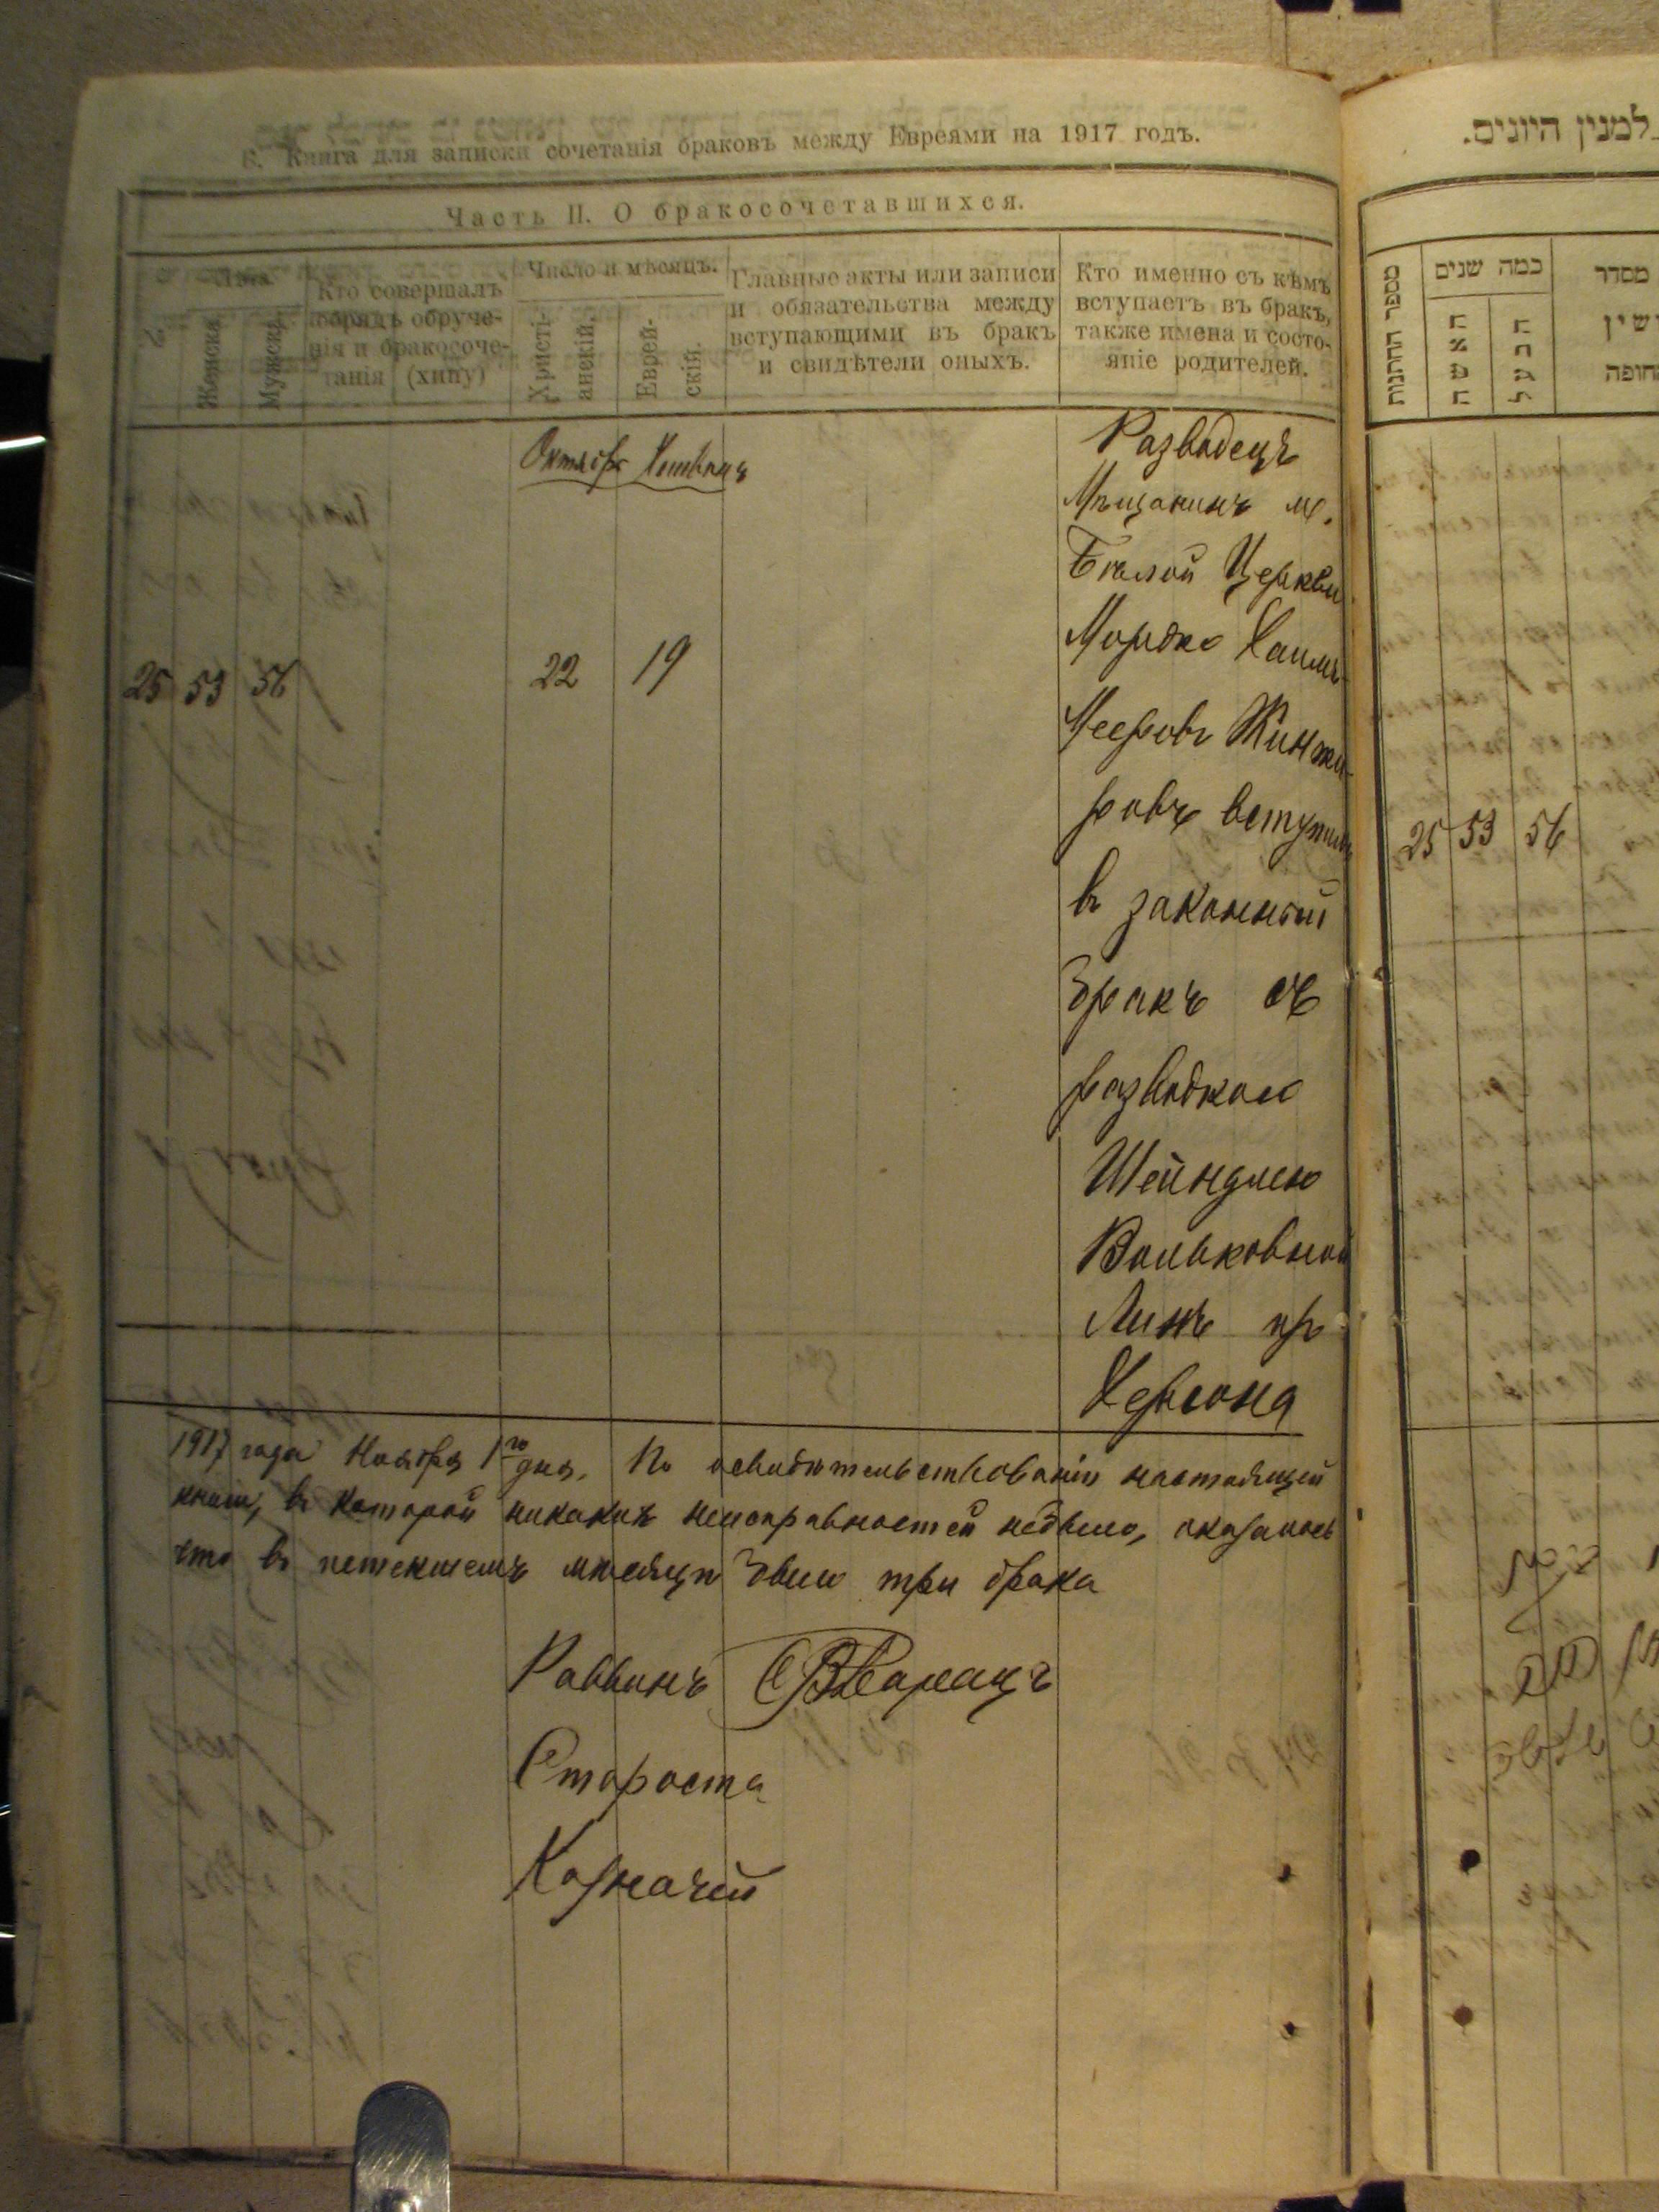 В. Книга для записки сочетанія браковъ между Евреями на 1917 годъ.
Часть II. О бракосочетавшихся.
Лѣта.
Женска.
Мужска.
Кто совершалъ
обрядъ обруче-
нія и бракосоче-
танія (хипу)
Число и мѣсяцъ.
Христі-
анскій.
Еврей-
скій.
Главные акты или записи
и обязательства между
вступающими въ бракъ
и свидѣтели оныхъ.
Кто именно съ кѣмъ
вступаетъ въ бракъ,
также имена и состо-
яніе родителей.
Октябрь Хешванъ
25 53 56
22 19
Разводецъ
Мѣщанинъ м.
Бѣлой Церкви
Мордко Хаимъ
Мееровъ Жинжи-
ровъ вступилъ
въ законный
бракъ съ
разводкою
Шейндлею
Вольковной
Линъ
Херсона
1917 года Ноября 1го дня. По освидѣтельствованіи настоящей
книги, въ которой никакихъ неисправностей небыло, оказалось
что въ истекшемъ мѣсяцѣ было три брака
Раввинъ
Староста
Казначей
למנין היונים.
מספר החתונות
כמה שנים
האשה
הבעל
מסדר
25 53 56